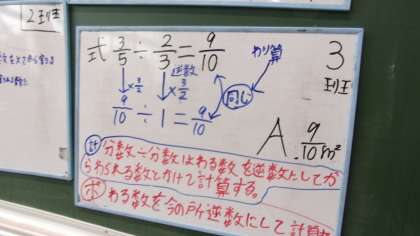 2班
式 3/5÷2/3=9/10
わり算
3班
×3/2
逆数
×3/2
同じ
9/10÷1=9/10
A. 9/10m²
計 分数÷分数はわる数を逆数にしてか
らわられる数とかけて計算する。
ポ わる数を今の所逆数にして計算